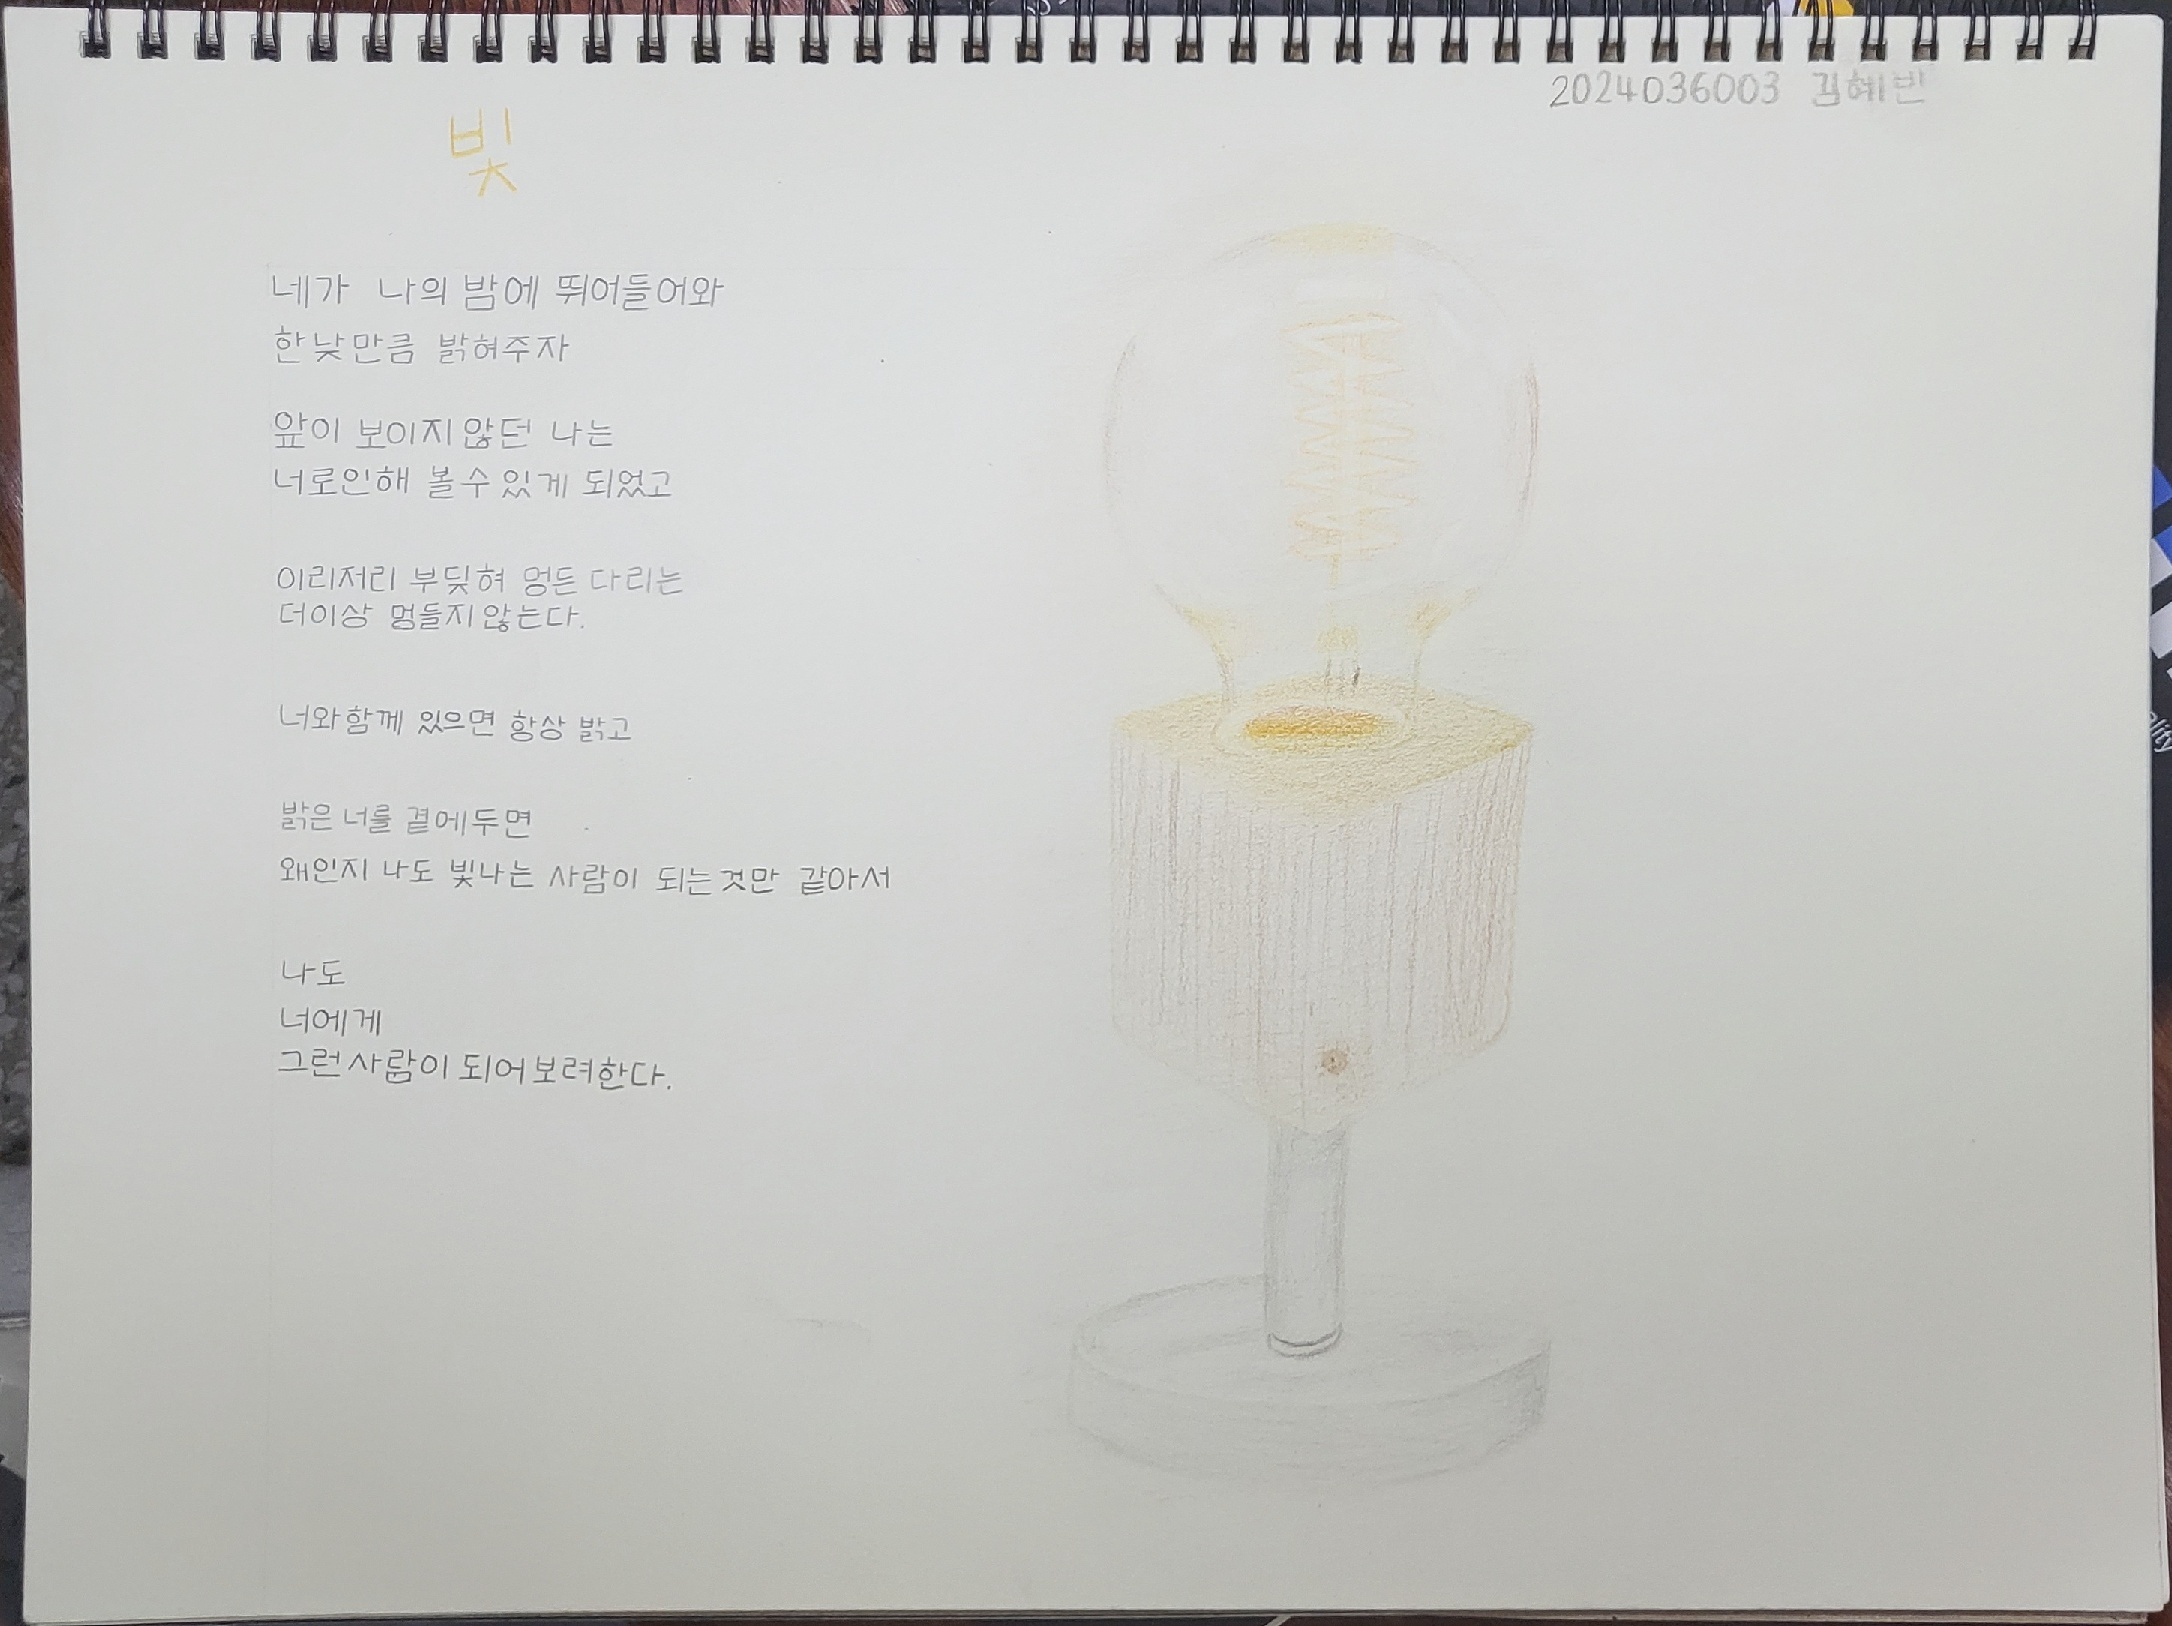 2024036003 김혜빈
빛
네가 나의 밤에 뛰어들어와
한낮만큼 밝혀주자
앞이 보이지않던 나는
너로인해 볼수있게 되었고
이리저리 부딪혀 멍든 다리는
더이상 멍들지않는다.
너와함께 있으면 항상 밝고
밝은 너를 곁에두면
왜인지 나도 빛나는 사람이 되는것만 같아서
나도
너에게
그런사람이 되어보려한다.